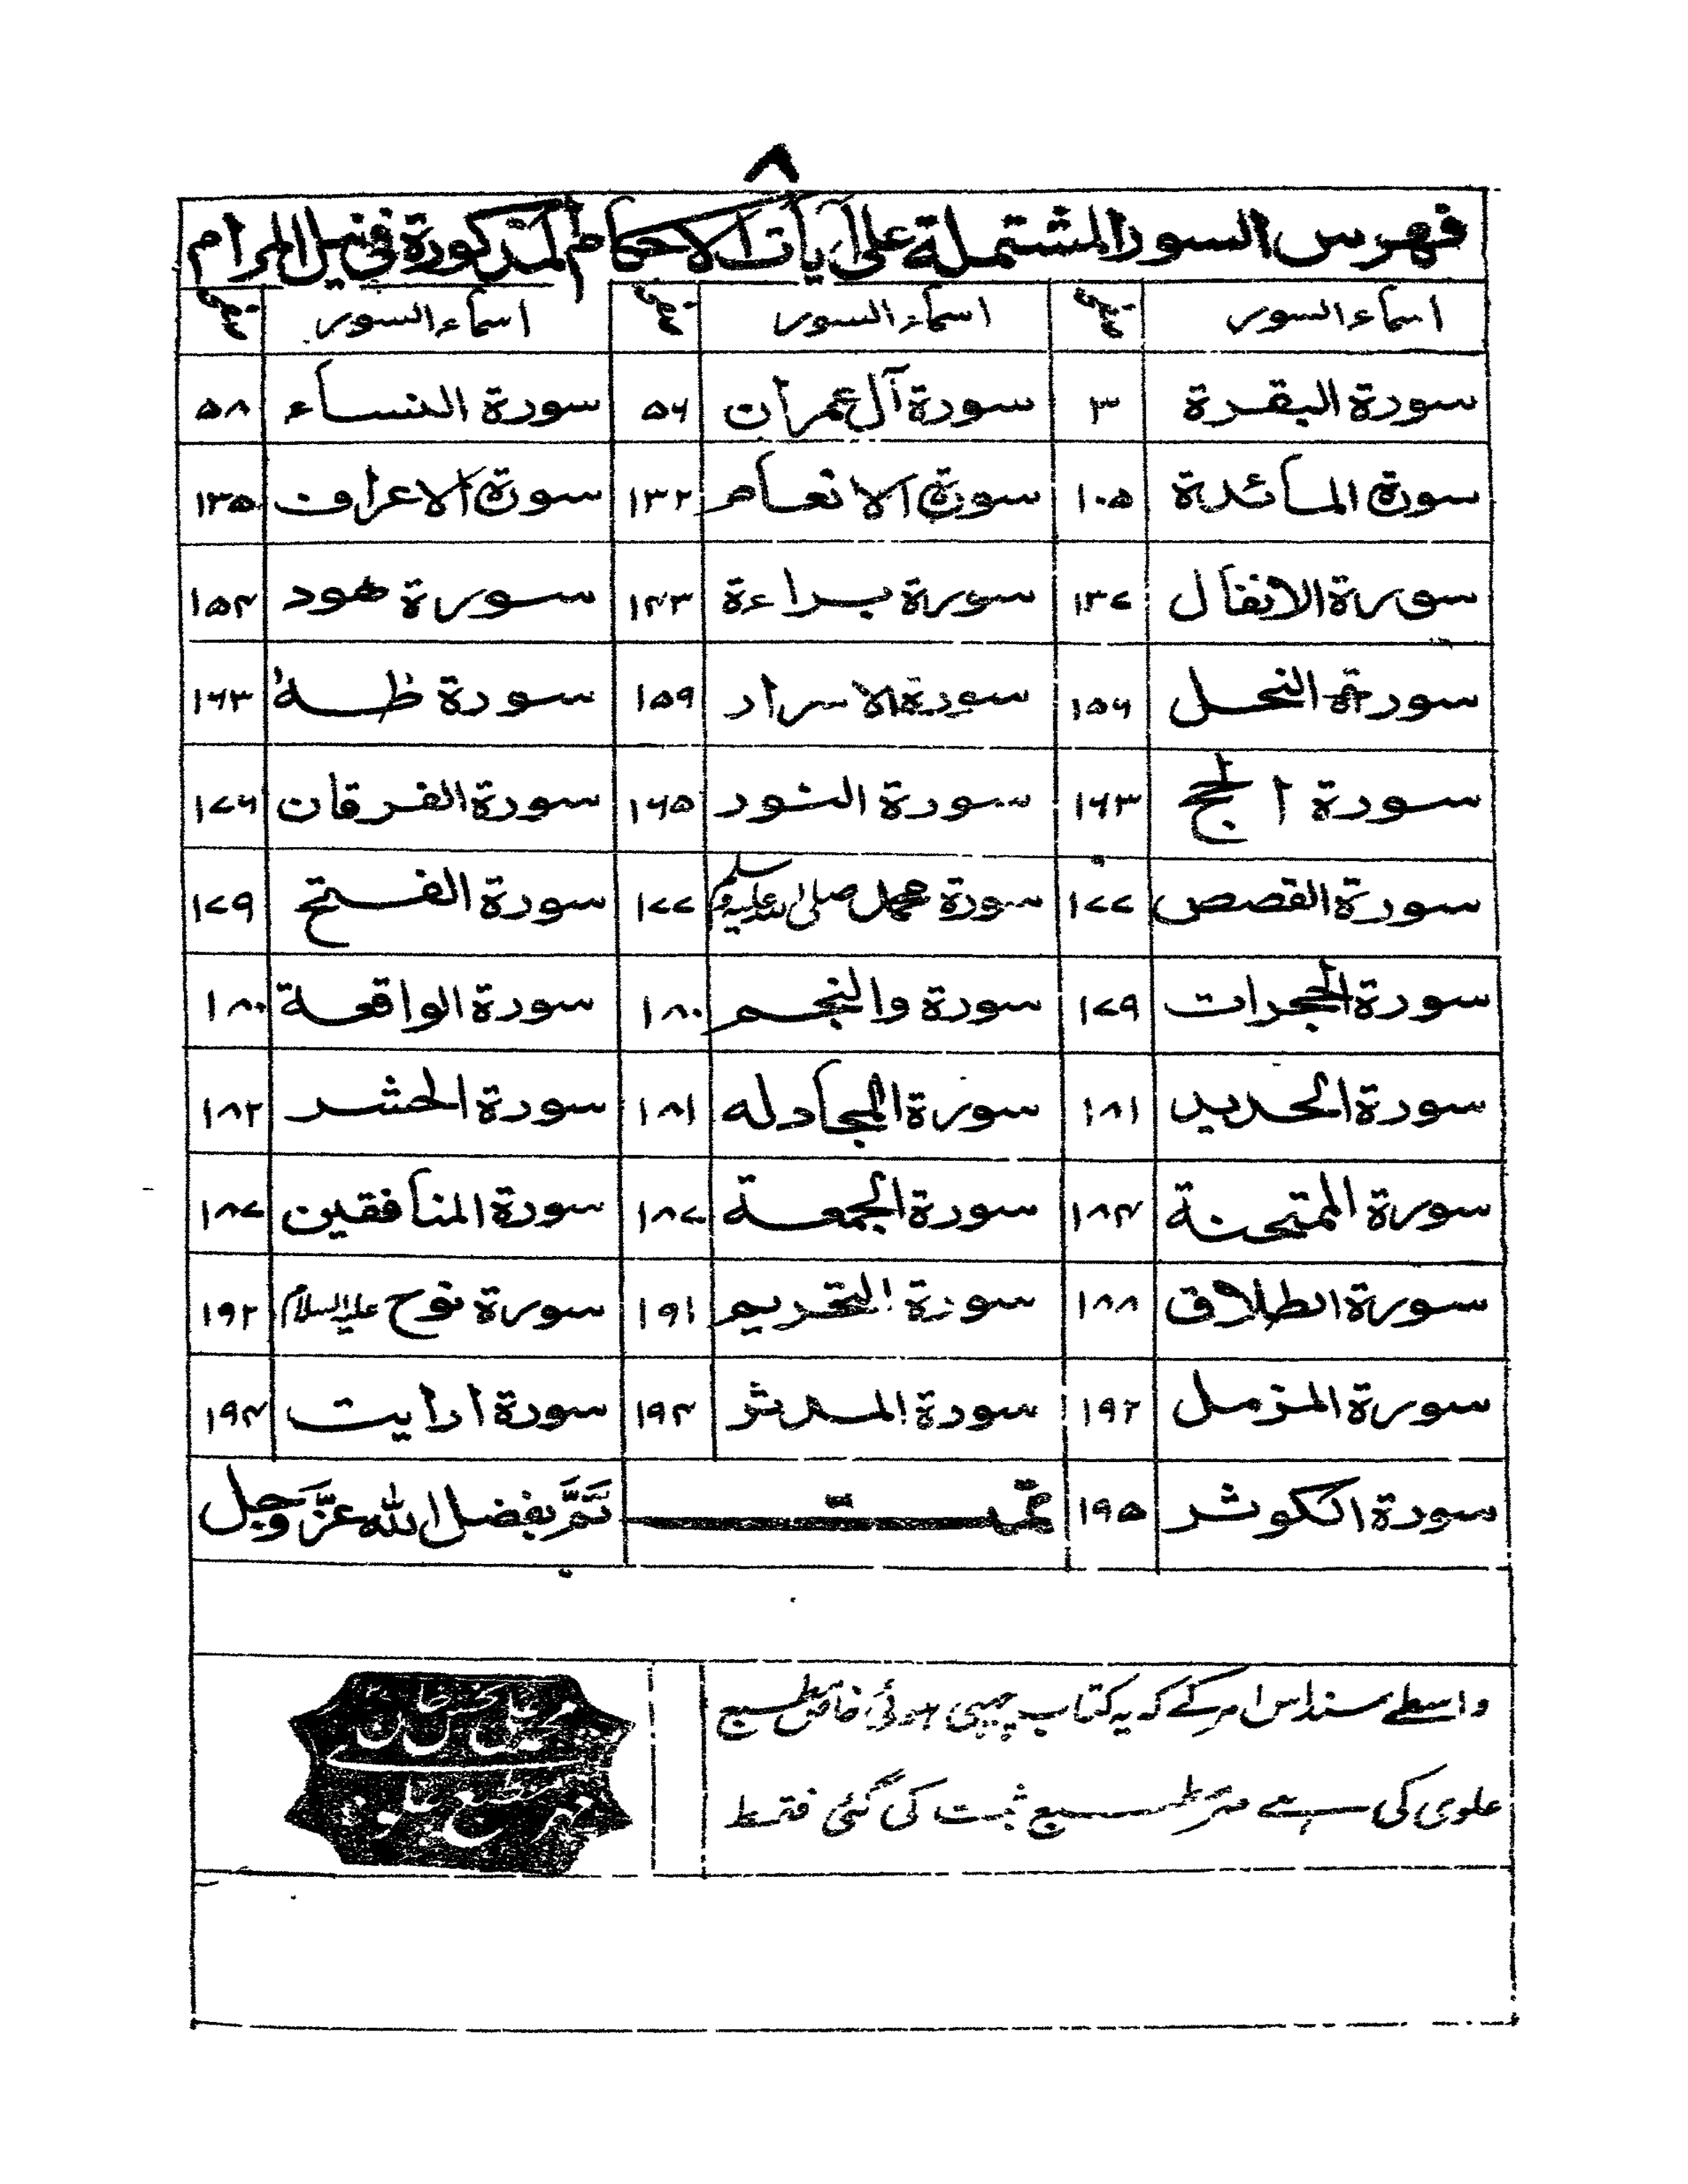 ٨
فهرس السور المشتملة على آيات الاحكام المذكورة في نيل المرام
اسماء السور صفحه اسماء السور صفحه اسماء السور صفحه
سورة البقرة ٣ سورة آل عمران ٥٦ سورة النساء ٥٨
سورة المائدة ١٠٥ سورة الانعام ١٣٢ سورة الاعراف ١٣٥
سورة الانفال ١٣٧ سورة براءة ١٤٣ سورة هود ١٥٤
سورة النحل ١٥٦ سورة الاسراء ١٥٩ سورة طه ١٦٣
سورة الحج ١٦٣ سورة النور ١٦٥ سورة الفرقان ١٧٦
سورة القصص ١٧٧ سورة محمد صلى الله عليه وسلم ١٧٧ سورة الفتح ١٧٩
سورة الحجرات ١٧٩ سورة والنجم ١٨٠ سورة الواقعة ١٨٠
سورة الحديد ١٨١ سورة المجادله ١٨١ سورة الحشر ١٨٢
سورة الممتحنة ١٨٤ سورة الجمعة ١٨٧ سورة المنافقين ١٨٧
سورة الطلاق ١٨٨ سورة التحريم ١٩١ سورة نوح عليه السلام ١٩٢
سورة المزمل ١٩٢ سورة المدثر ١٩٤ سورة ارايت ١٩٤
سورة الكوثر ١٩٥ تمت تَمَّ بفضل الله عزّ وجل
واسطے سند اس امر کے کہ یہ کتاب چھپی ہوئی خاص مطبع
علوی کی ہے مہر مطبع ثبت کی گئی فقط